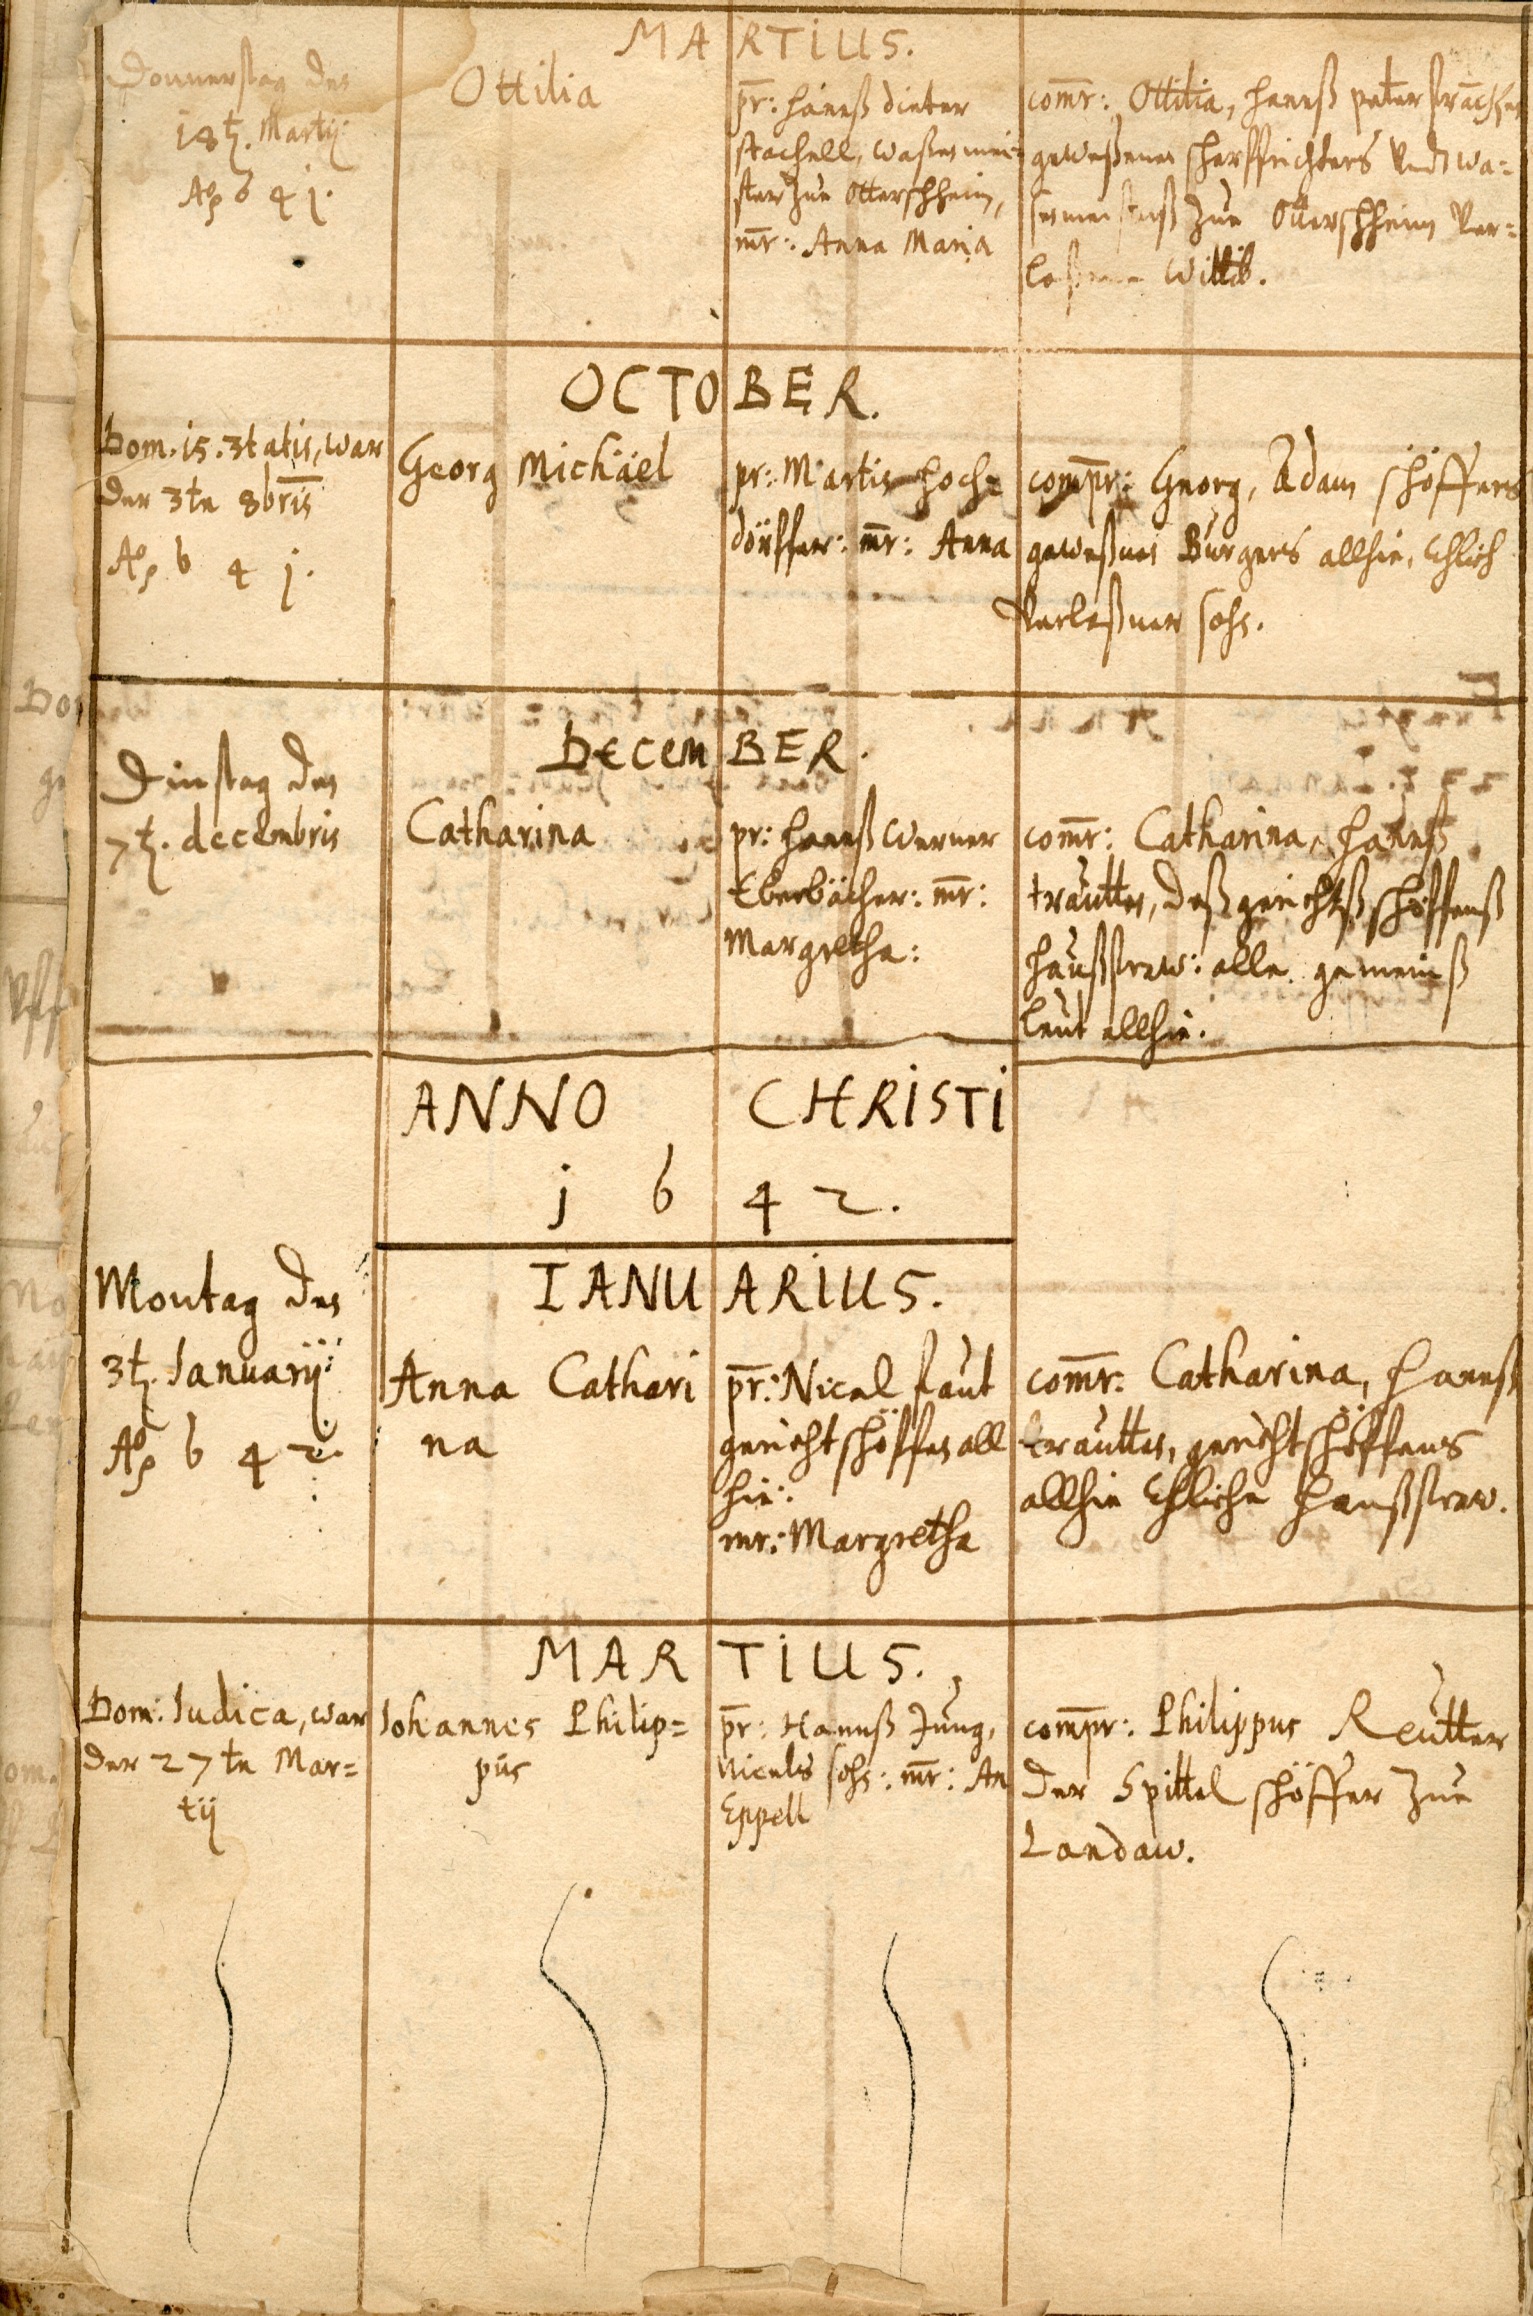 MARTIUS.
Donnerstag den
18t. Martij.
Aō 641.
Ottilia
pr: hannß dieter
stachell, waßenmei=
ster zue Otterschheim,
mr: Anna Maria
comr: Ottilia, hannß peter
geweßenen scharffrichters vndt wa=
senmeisterß zue Otterschheim ver=
laßene Wittib.
OCTOBER.
Dom. 15. 3tatis, war
der 3te 8bris
Aō 641.
Georg Michäel
pr: Martin Hoch=
dörffer: mr: Anna
compr: Georg, Adam schöffers
geweßnen Burgers allhie, Ehlich
verlaßner sohn.
DECEMBER.
Dinstag den
7t. decembris
Catharina
pr: hannß Werner
Eberbächer: mr:
Margretha:
comr: Catharina, hannß
trautten, deß gerichtßschöffenß
haußfraw: alle gemeinß
leut allhie.
ANNO CHRISTI
1642.
IANUARIUS.
Montag den
3t. Ianuarij:
Aō 642.
Anna Cathari
na
pr: Nicol faut
gerichtschöffen all
hie:
mr: Margretha
comr: Catharina, Hannß
trautten, gerichtschöffens
allhie Ehliche Haußfraw.
MARTIUS.
Dom: Iudica, war
der 27te Mar=
tij
Iohannes Philip=
pus
pr: Hannß Jung,
Nicols sohn: mr: An
Eppell
compr: Philippus Reutter
der Spittel schöffer zue
Landaw.